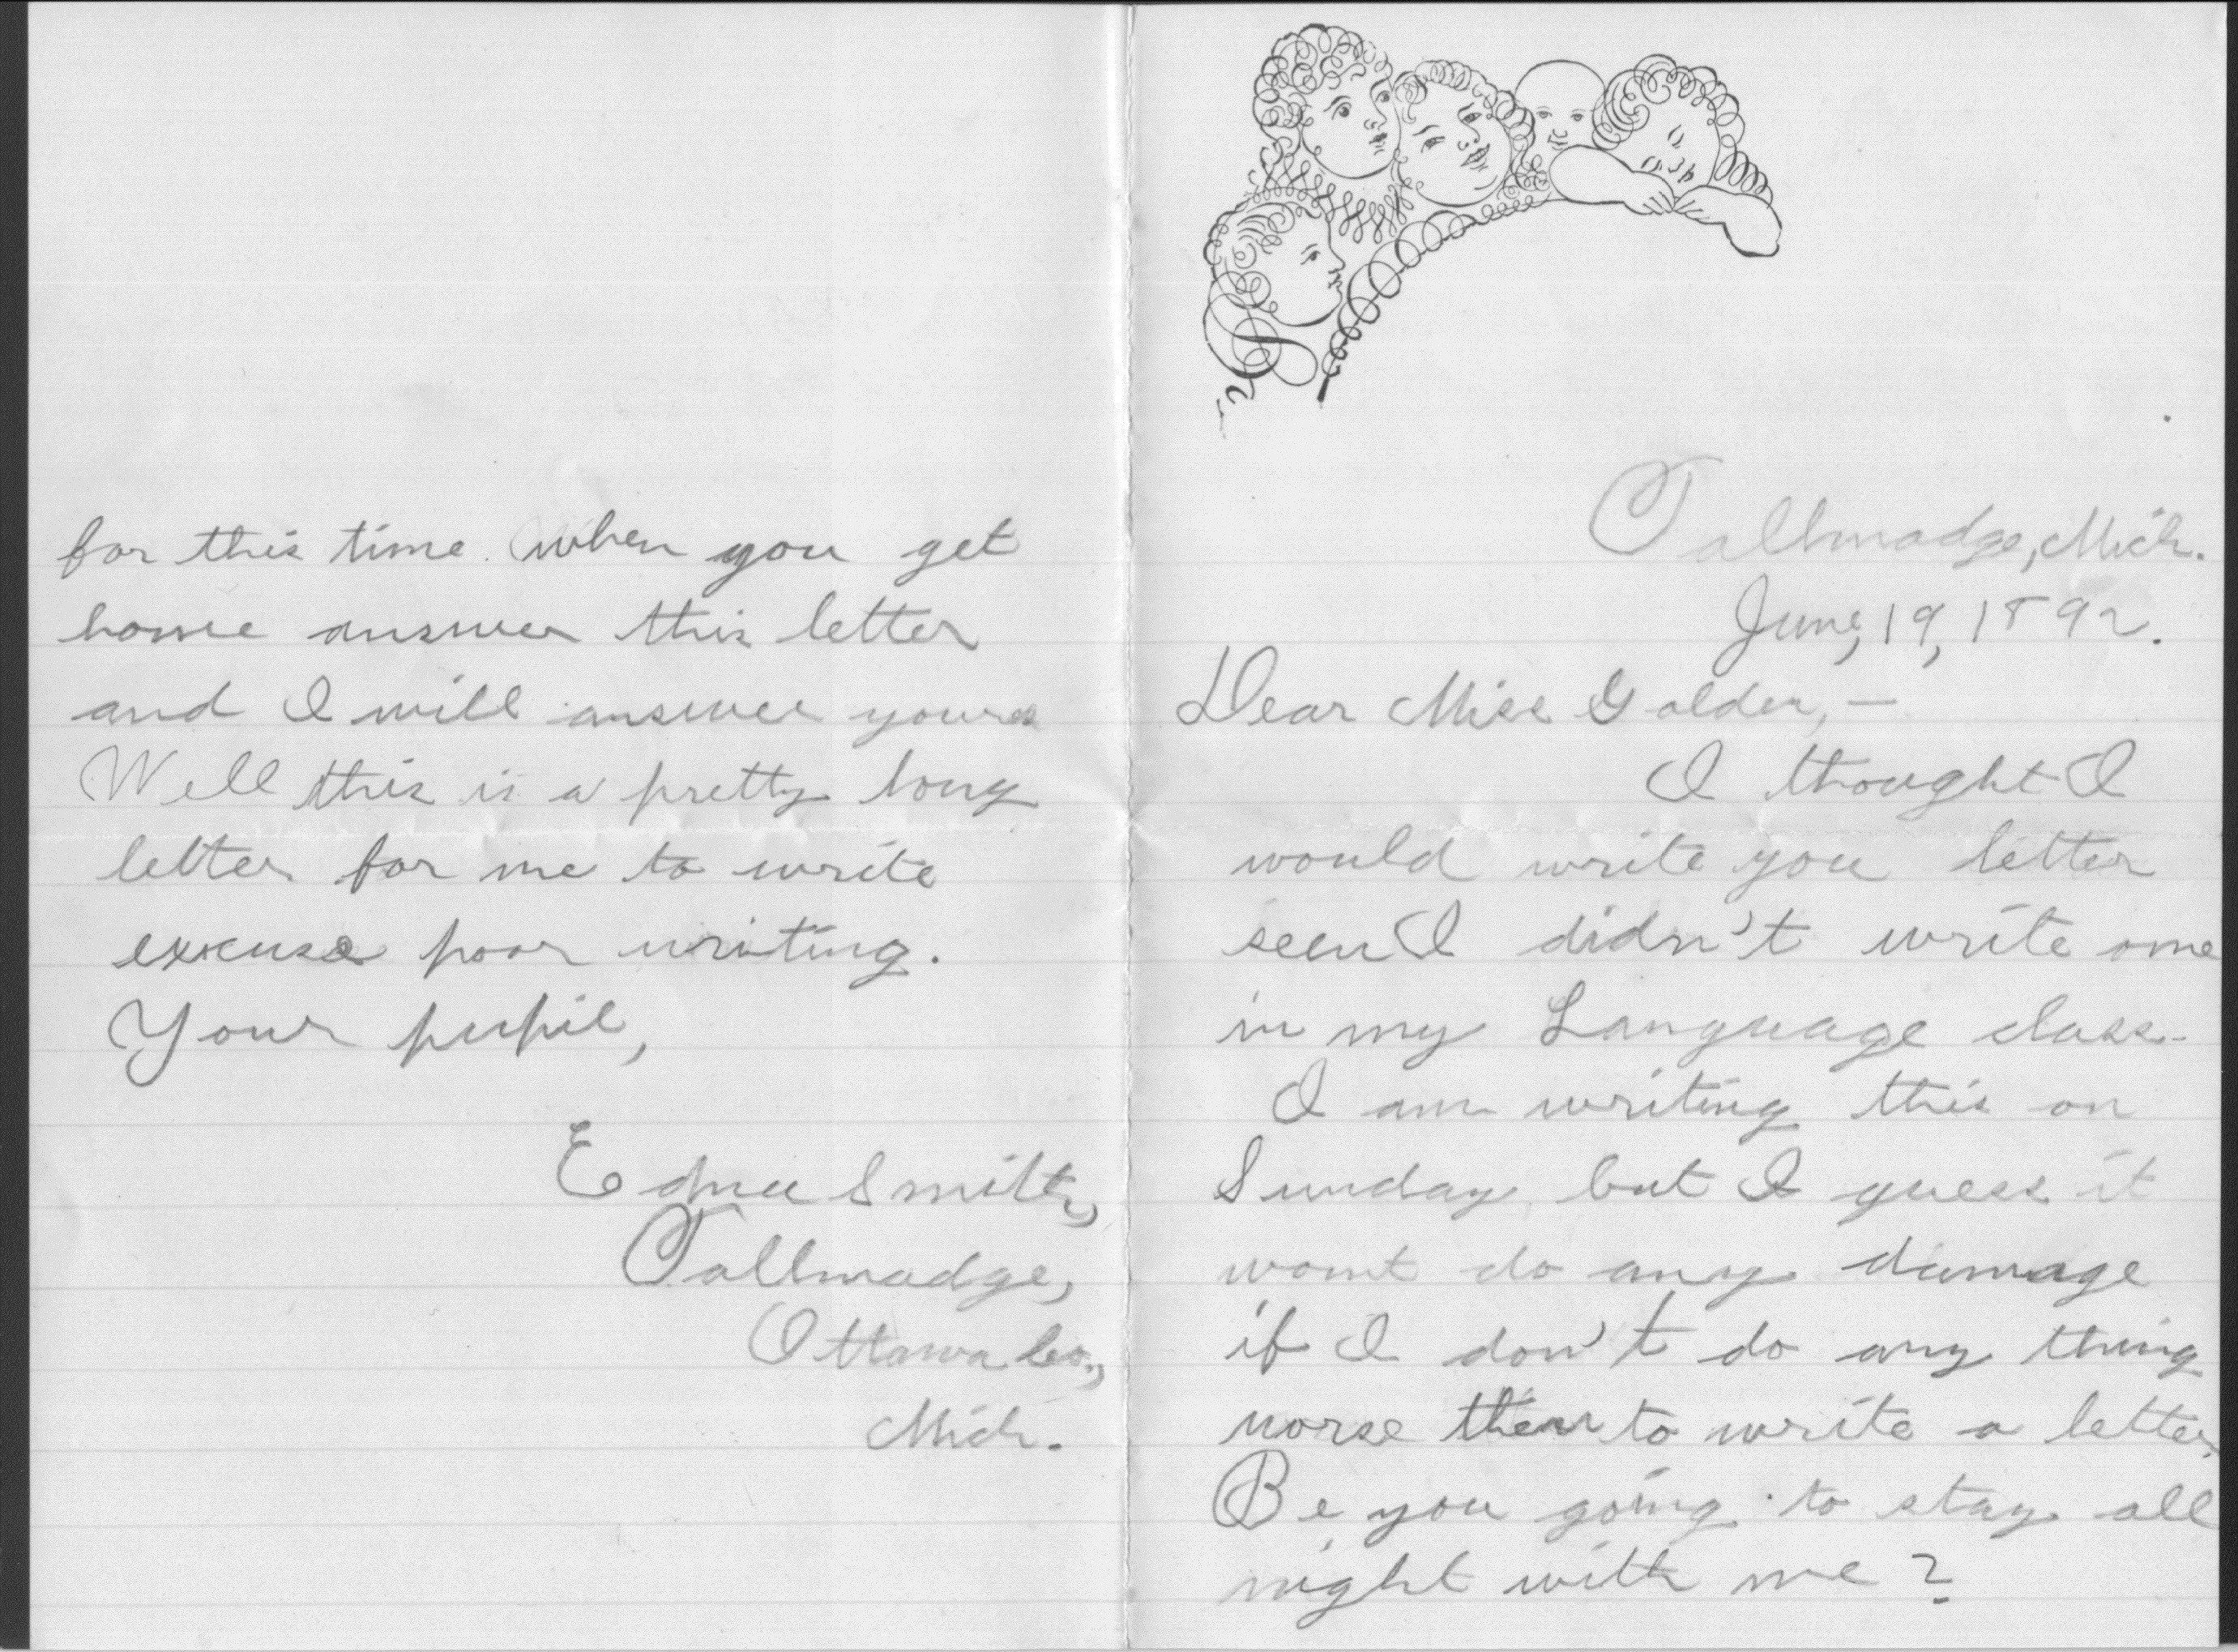 Tallmadge, Mich.
June, 19, 1892.
Dear Miss Golden, —
I thought I
would write you letter
seen I didn't write ome
in my Language class.
I am writing this on
Sunday but I guess it
wont do any damage
if I don't do any thing
worse then to write a letter.
Be you going to stay all
night with me?
for this time. When you get
home answer this letter
and I will answer yours
Well this is a pretty long
letter for me to write
excuse poor writing.
Your pupil,
Edna Smith,
Tallmadge,
Ottawa Co.,
Mich.